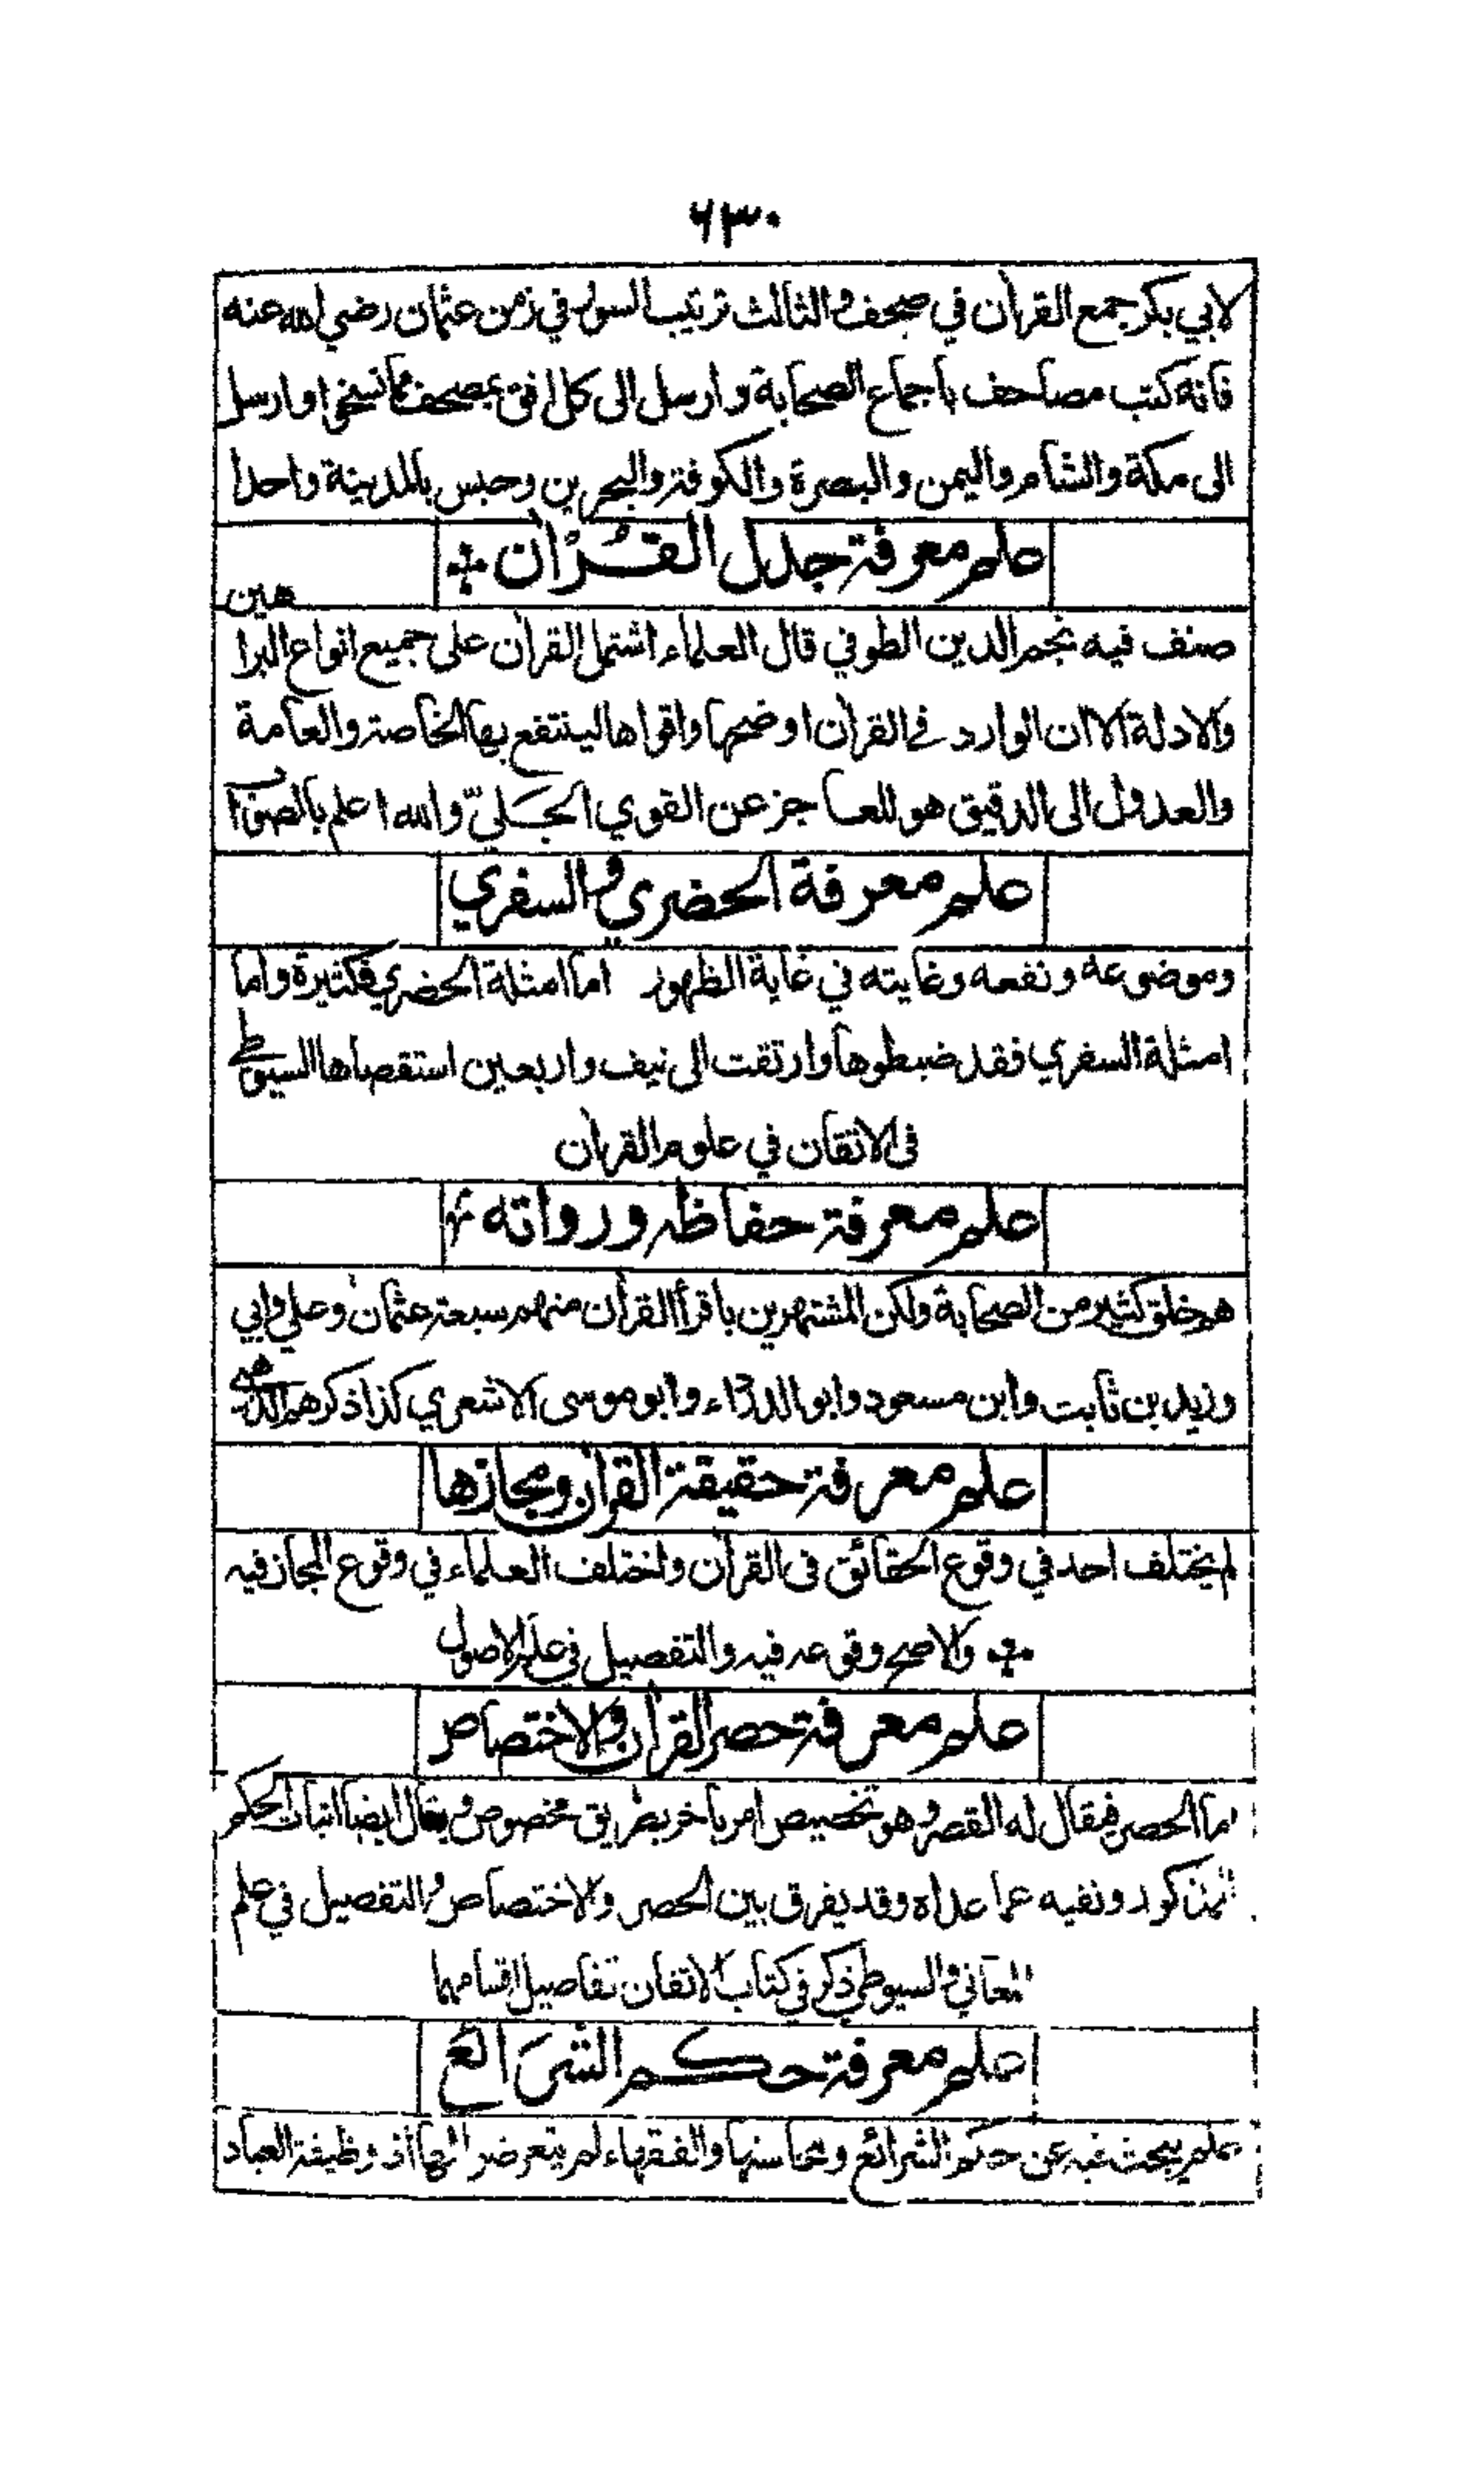 ٦٣٠
لابي بكر جمع القران في صحف والثالث ترتيب السور في زمن عثمان رضي الله عنه
فانه كتب مصاحف باجماع الصحابة وارسل الى كل افق بمصحف مما نسخوا وارسل
الى مكة والشام واليمن والبصرة والكوفة والبحرين وحبس بالمدينة واحدا
علم معرفة جدل القران
صنف فيه نجم الدين الطوفي قال العلماء اشتمل القران على جميع انواع البرا هين
والادلة الا ان الوارد في القران اوضحها واقواها لينتفع بها الخاصة والعامة
والعدول الى الدقيق هو للعاجز عن القوي الجَليّ والله اعلم بالصواب
علم معرفة الحضري والسفري
وموضوعه ونفعه وغايته في غاية الظهور اما امثلة الحضري فكثيرة واما
امثلة السفري فقد ضبطوها وارتقت الى نيف واربعين استقصاها السيوطي
فى الاتقان في علوم القران
علم معرفة حفاظه ورواته
هم خلق كثير من الصحابة ولكن المشتهرين باقرأ القرأن منهم سبعة عثمان وعلي وابي
وزيد بن ثابت وابن مسعود وابو الدرداء وابو موسى الاشعري كذا ذكرهم الذهبي
علم معرفة حقيقة القران ومجازها
لم يختلف احد في وقوع الحقائق فى القران واختلف العلماء في وقوع المجاز فيه
والاصح وقوعه فيه والتفصيل في علم الاصول
علم معرفة حصر القران والاختصاص
اما الحصر فيقال له القصر وهو تخصيص امر باخر بطريق مخصوص ويقال ايضا اثبات الحكم
للمذكور ونفيه عما عداه وقد يفرق بين الحصر والاختصاص والتفصيل في علم
المعاني والسيوطي ذكر في كتاب الاتقان تفاصيل اقسامهما
علم معرفة حكم الشرائع
علم يبحث فيه عن حكم الشرائع ومحاسنها والفقهاء لم يتعرضوا لها اذ وظيفة العباد